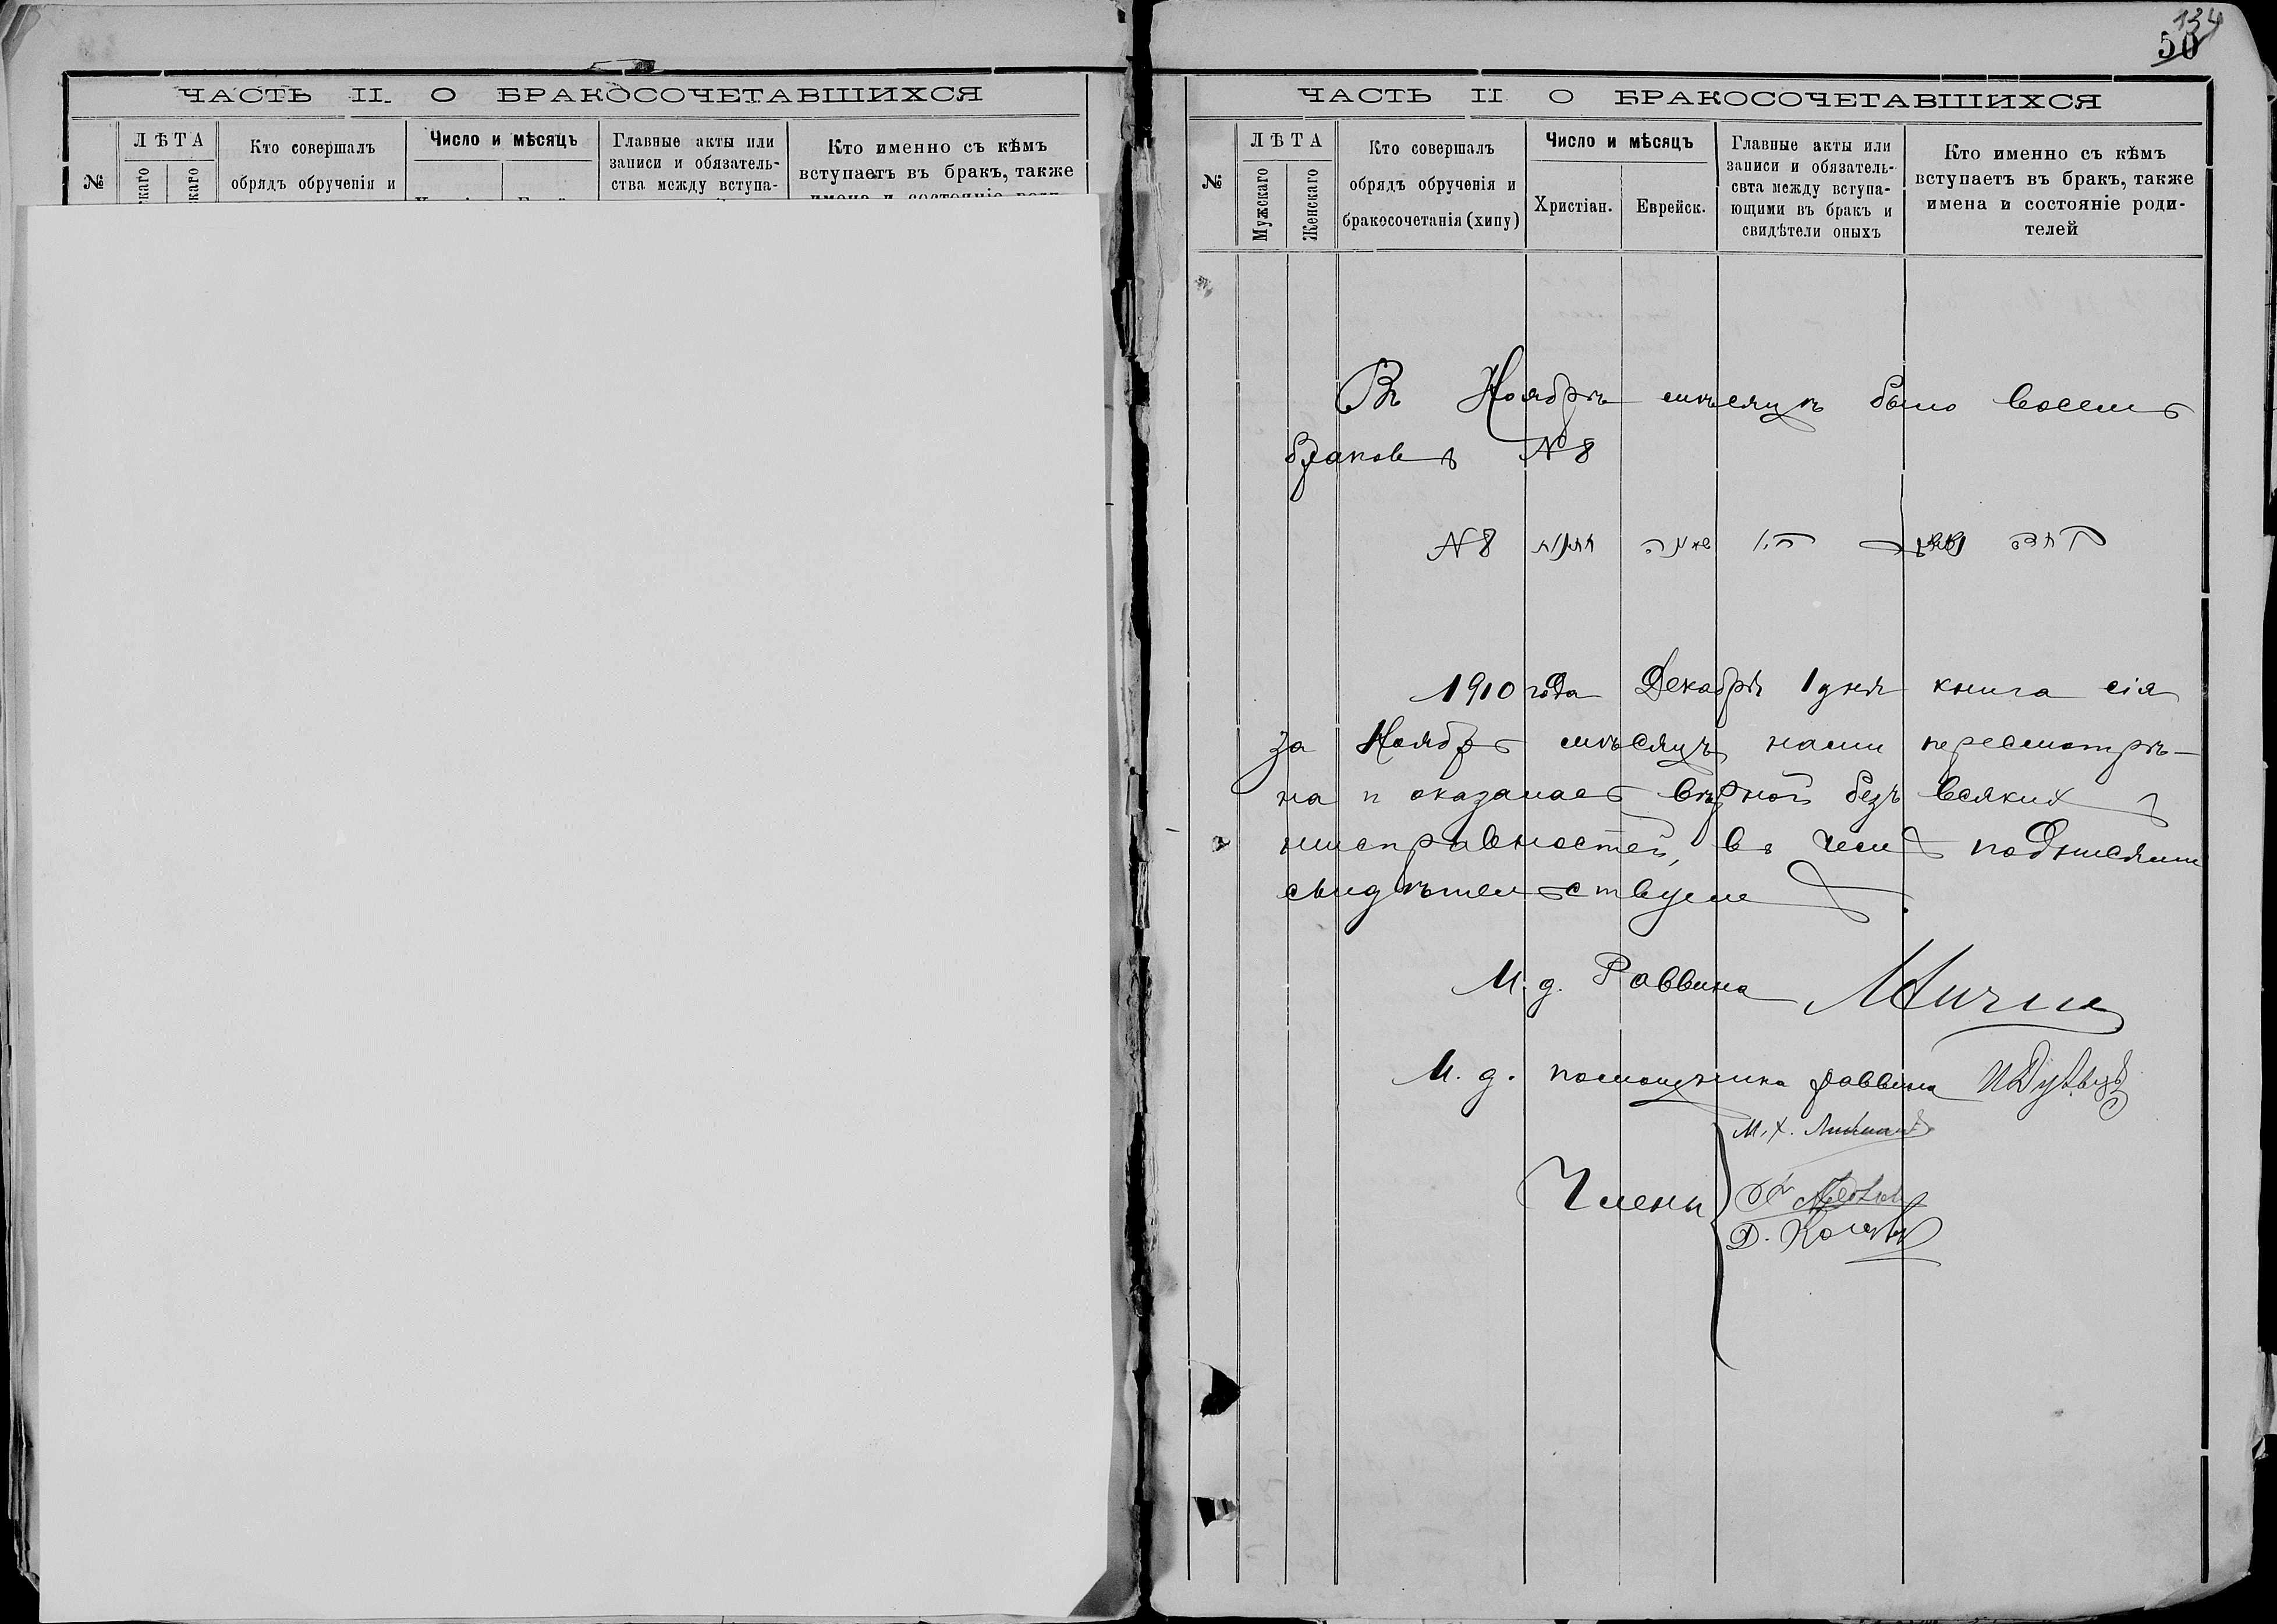 ЧАСТЬ II. О БРАКОСОЧЕТАВШИХСЯ
№
ЛѢТА
Кто совершалъ
обрядъ обрученія и
Число и мѣсяцъ
Главные акты или
записи и обязатель-
ства между вступа-
Кто именно съ кѣмъ
вступаетъ въ бракъ, также
134
50
ЧАСТЬ II О БРАКОСОЧЕТАВШИХСЯ
№
ЛѢТА
Мужскаго
Женскаго
Кто совершалъ
обрядъ обрученія и
бракосочетанія (хипу)
Число и мѣсяцъ
Христіан.
Еврейск.
Главные акты или
записи и обязатель-
свта между вступа-
ющими въ бракъ и
свидѣтели оныхъ
Кто именно съ кѣмъ
вступаетъ въ бракъ, также
имена и состояніе роди-
телей
Въ Ноябрѣ мѣсяцѣ было восемь
браковъ №8
№8
1910 года Декабря 1 дня книга сія
за Ноябрь мѣсяцъ нами пересмотрѣ-
на и оказалась вѣрной безъ всякихъ
ниисправностей, въ чемъ подписями
свидѣтельствуемъ.
И. д. Раввина
И. д. помощника раввина
М. Х.
Члены
Д.